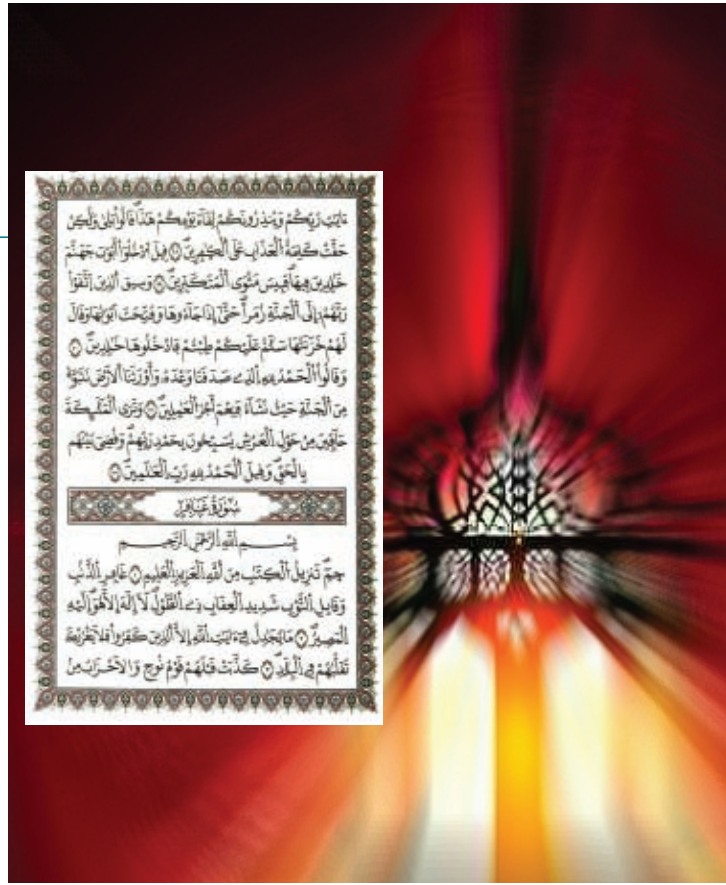 ءَايَٰتِ رَبِّكُمْ وَيُنذِرُونَكُمْ لِقَآءَ يَوْمِكُمْ هَٰذَا قَالُوا۟ بَلَىٰ وَلَٰكِنْ
حَقَّتْ كَلِمَةُ الْعَذَابِ عَلَى الْكَٰفِرِينَ قِيلَ ادْخُلُوٓا۟ أَبْوَٰبَ جَهَنَّمَ
خَٰلِدِينَ فِيهَا فَبِيسَ مَثْوَى الْمُتَكَبِّرِينَ وَسِيقَ الَّذِينَ اتَّقَوْا۟
رَبَّهُمُۥٓ إِلَى الْجَنَّةِ زُمَرًا حَتَّىٰٓ إِذَا جَآءُوهَا وَفُتِّحَتْ أَبْوَٰبُهَا وَقَالَ
لَهُمْ خَزَنَتُهَا سَلَٰمٌ عَلَيْكُمْ طِبْتُمْ فَادْخُلُوهَا خَٰلِدِينَ
وَقَالُوا۟ الْحَمْدُ لِلهِ الَّذِے صَدَقَنَا وَعْدَهُۥ وَأَوْرَثَنَا الْأَرْضَ نَتَبَوَّأُ
مِنَ الْجَنَّةِ حَيْثُ نَشَآءُ فَنِعْمَ أَجْرُ الْعَٰمِلِينَ وَتَرَى الْمَلَٰٓئِكَةَ
حَآفِّينَ مِنْ حَوْلِ الْعَرْشِ يُسَبِّحُونَ بِحَمْدِ رَبِّهِمْ وَقُضِيَ بَيْنَهُم
بِالْحَقِّ وَقِيلَ الْحَمْدُ لِلهِ رَبِّ الْعَٰلَمِينَ
سُورَةُ غَافِر
بِسْمِ اللَّهِ الرَّحْمَٰنِ الرَّحِيمِ
حمٓ تَنزِيلُ الْكِتَٰبِ مِنَ اللَّهِ الْعَزِيزِ الْعَلِيمِ غَافِرِ الذَّنۢبِ
وَقَابِلِ التَّوْبِ شَدِيدِ الْعِقَابِ ذِے الطَّوْلِ لَآ إِلَٰهَ إِلَّا هُوَ إِلَيْهِ
الْمَصِيرُ مَا يُجَٰدِلُ فِےٓ ءَايَٰتِ اللَّهِ إِلَّا الَّذِينَ كَفَرُوا۟ فَلَا يَغْرُرْكَ
تَقَلُّبُهُمْ فِے الْبِلَٰدِ كَذَّبَتْ قَبْلَهُمْ قَوْمُ نُوحٍ وَالْأَحْزَابُ مِنۢ